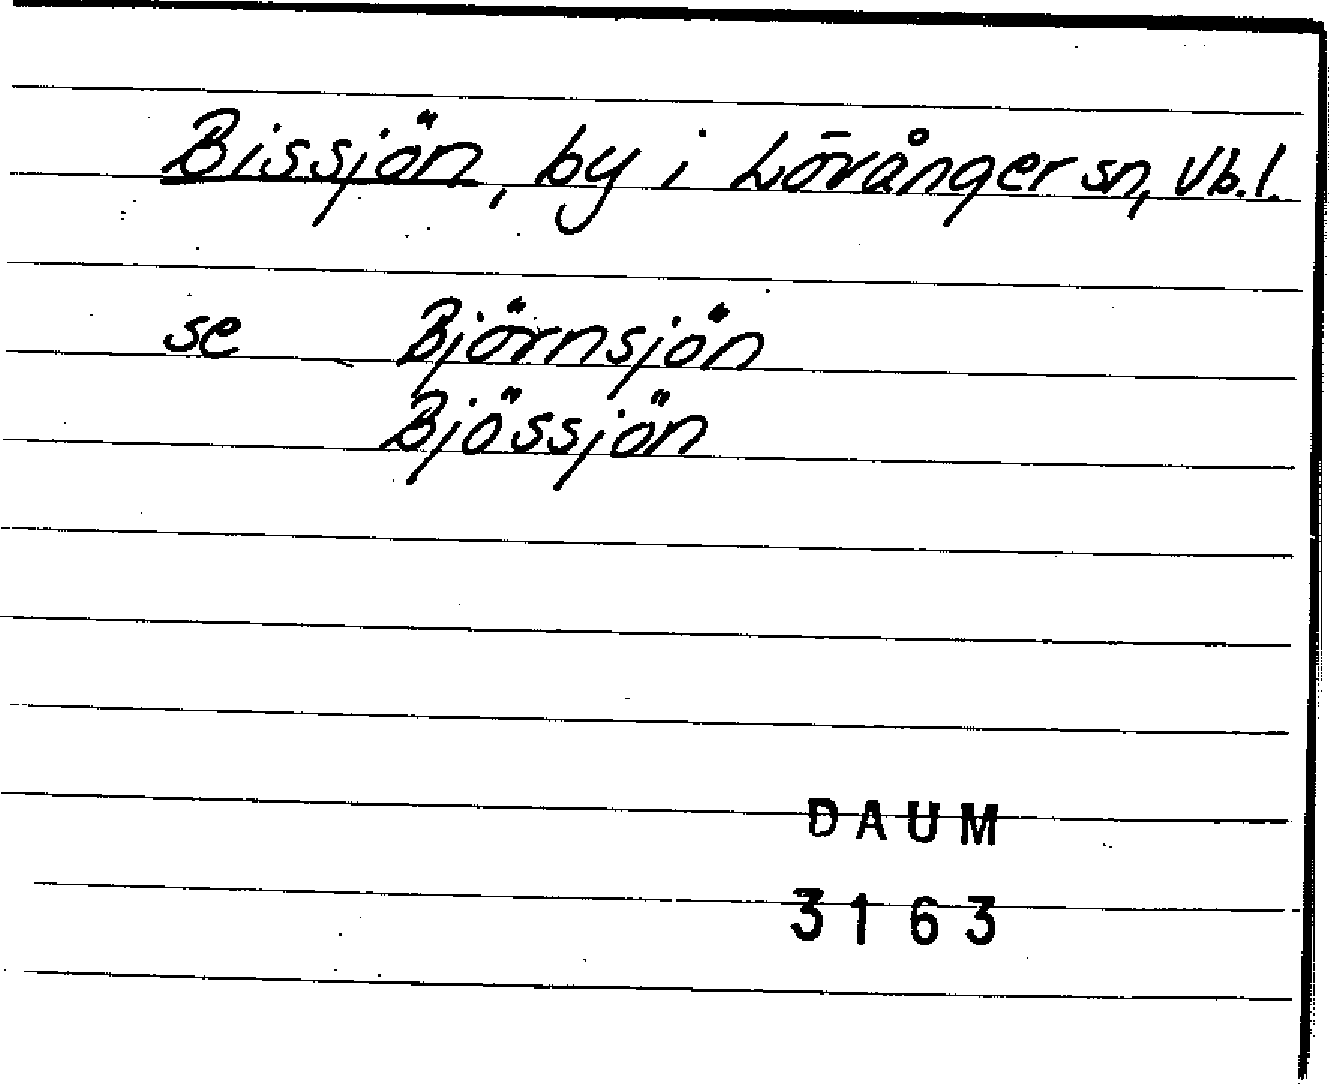 Bissjön, by i Lövånger sn, Vb.l.
se Björnsjön
Bjössjön
DAUM
3163